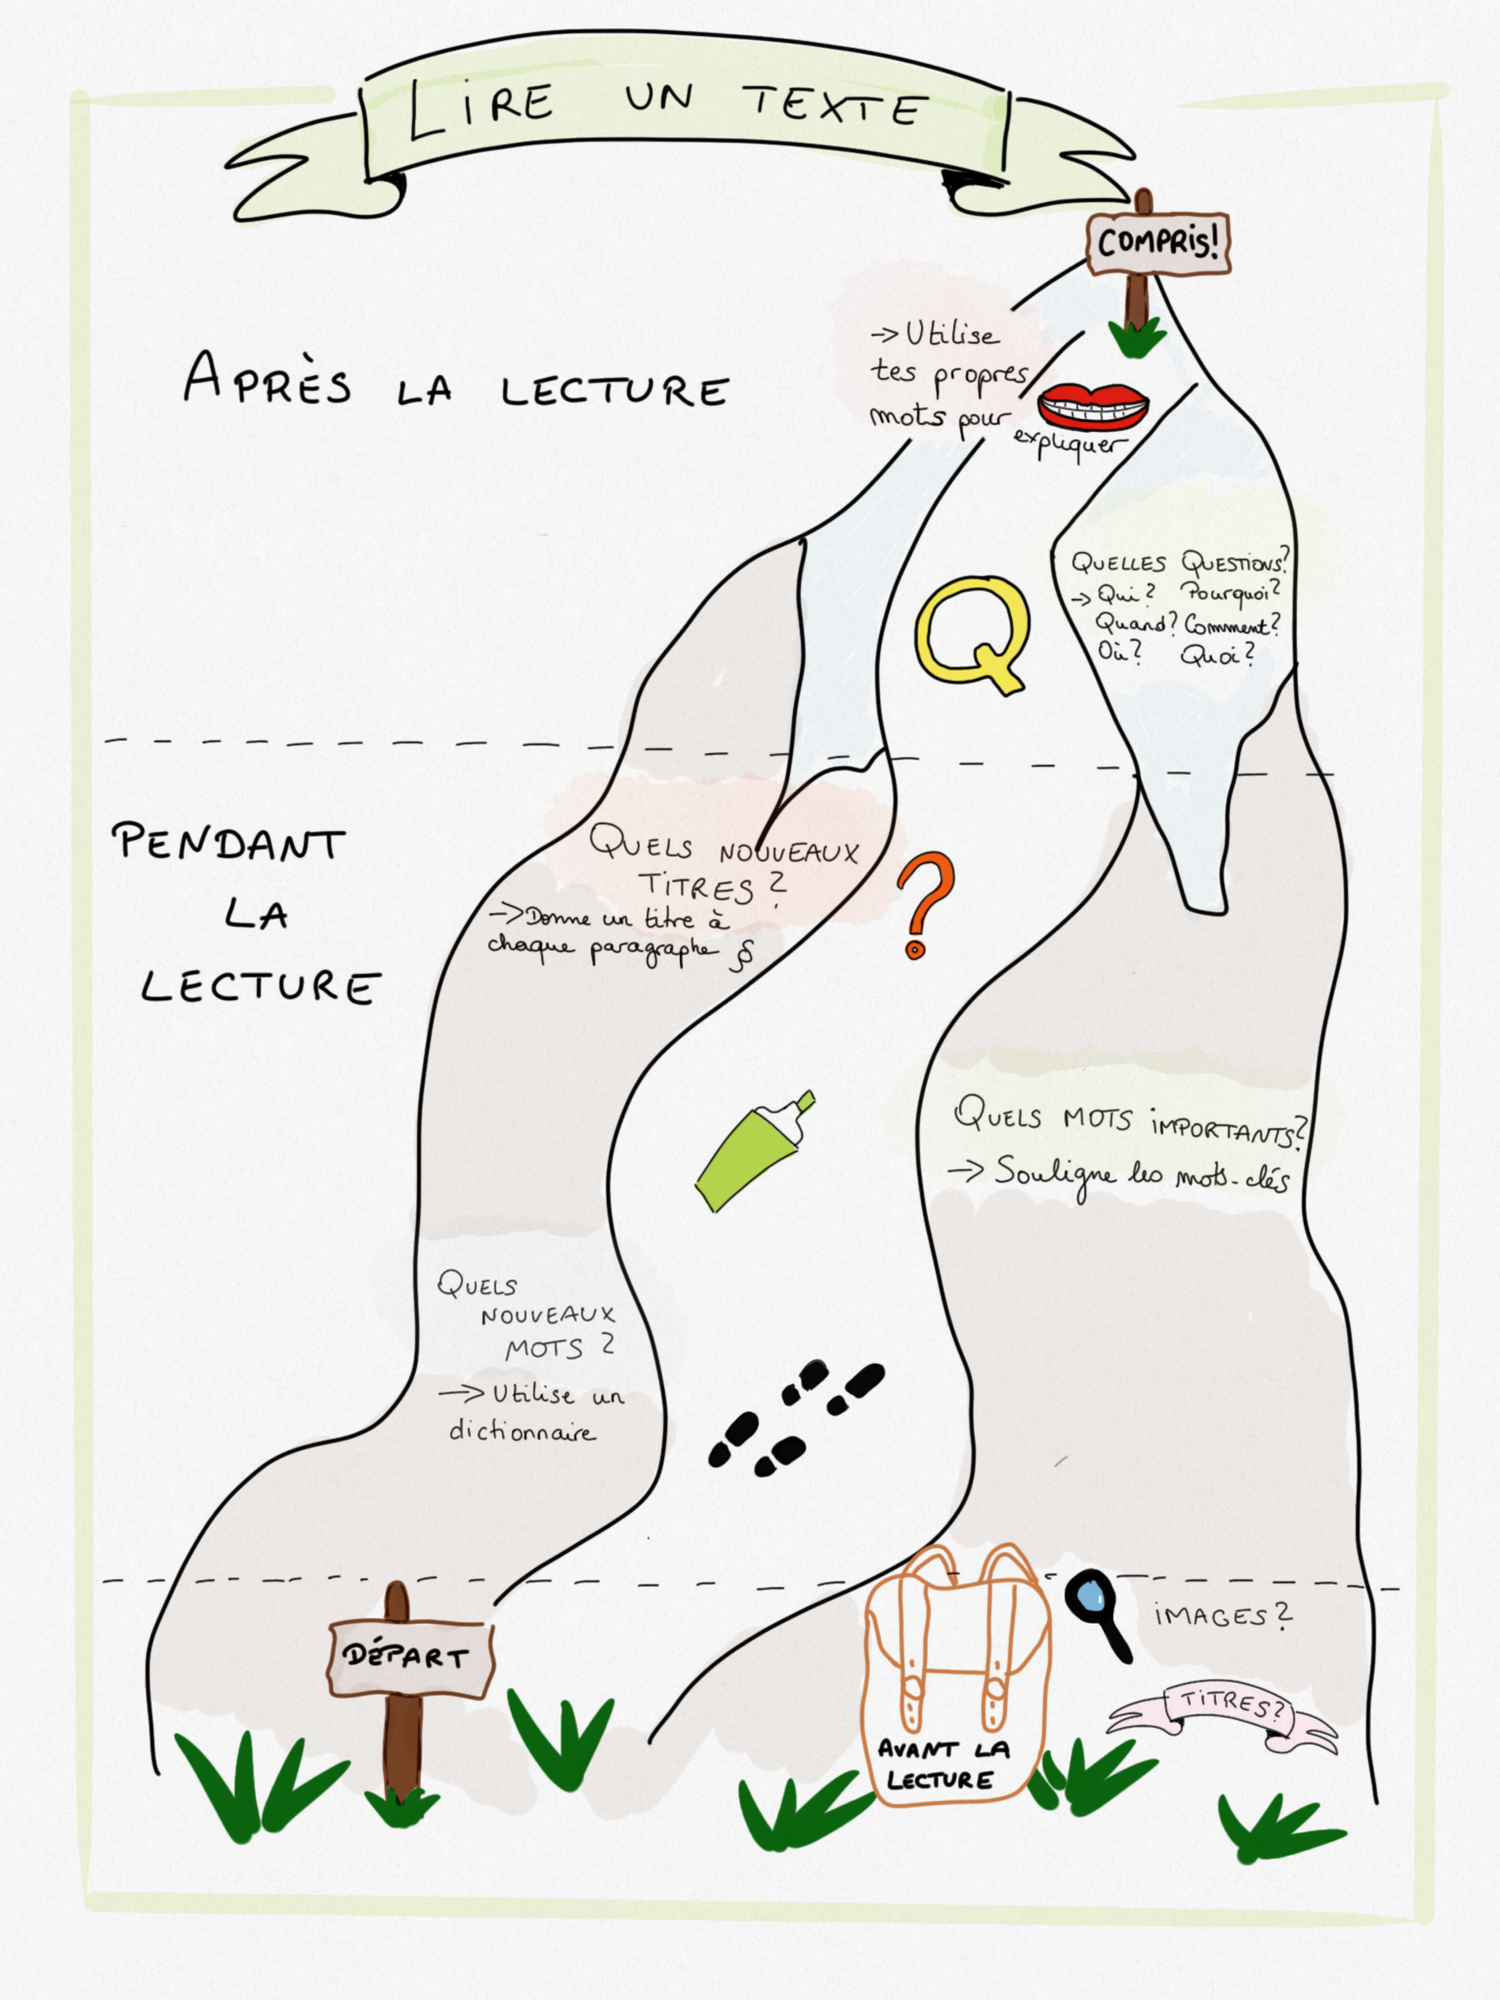 LIRE UN TEXTE
COMPRIS!
APRÈS LA LECTURE
→ Utilise
tes propres
mots pour
expliquer
Q
QUELLES QUESTIONS?
→ Qui? Pourquoi?
Quand? Comment?
Où? Quoi?
PENDANT
LA
LECTURE
QUELS NOUVEAUX
TITRES?
→ Donne un titre à
chaque paragraphe §
?
QUELS MOTS IMPORTANTS?
→ Souligne les mots-clés
QUELS
NOUVEAUX
MOTS?
→ Utilise un
dictionnaire
DÉPART
AVANT LA
LECTURE
IMAGES?
TITRES?